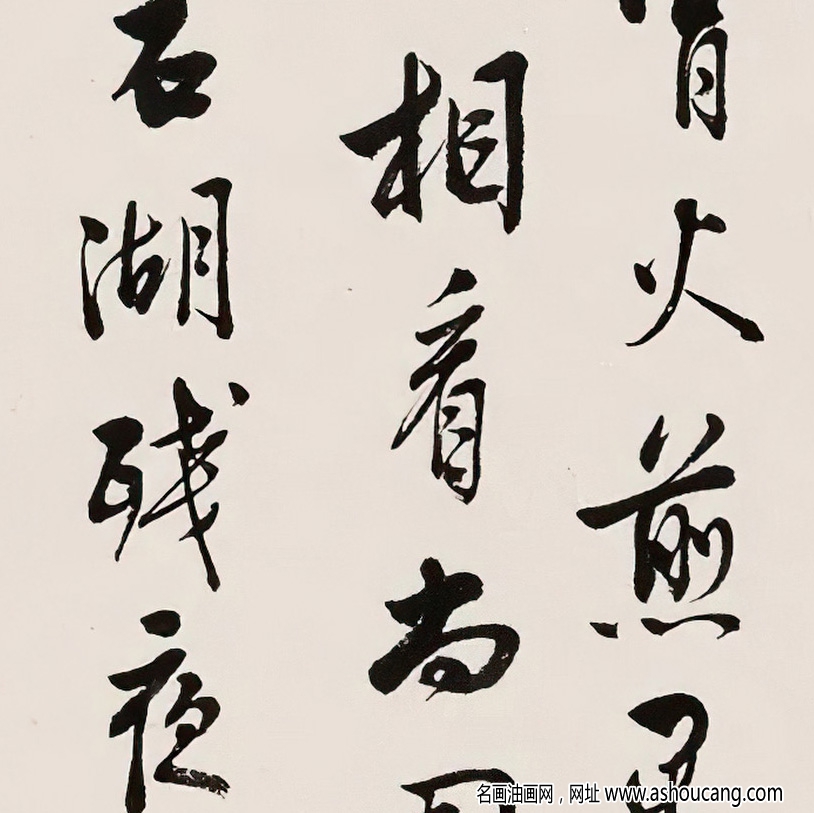 火煎
相看尚
石湖残夜
名画油画网，网址 www.ashoucang.com